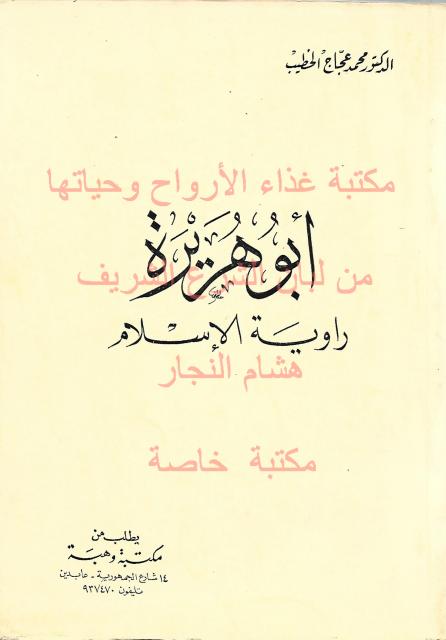 الدكتور محمد عجاج الخطيب
مكتبة غذاء الأرواح وحياتها
أبو هُرَيْرَة
من لبان الشرع الشريف
راوية الإسلام
هشام النجار
مكتبة خاصة
يطلب من
مكتبة وهبة
١٤ شارع الجمهورية - عابدين
تليفون ٩٣٧٤٧٠